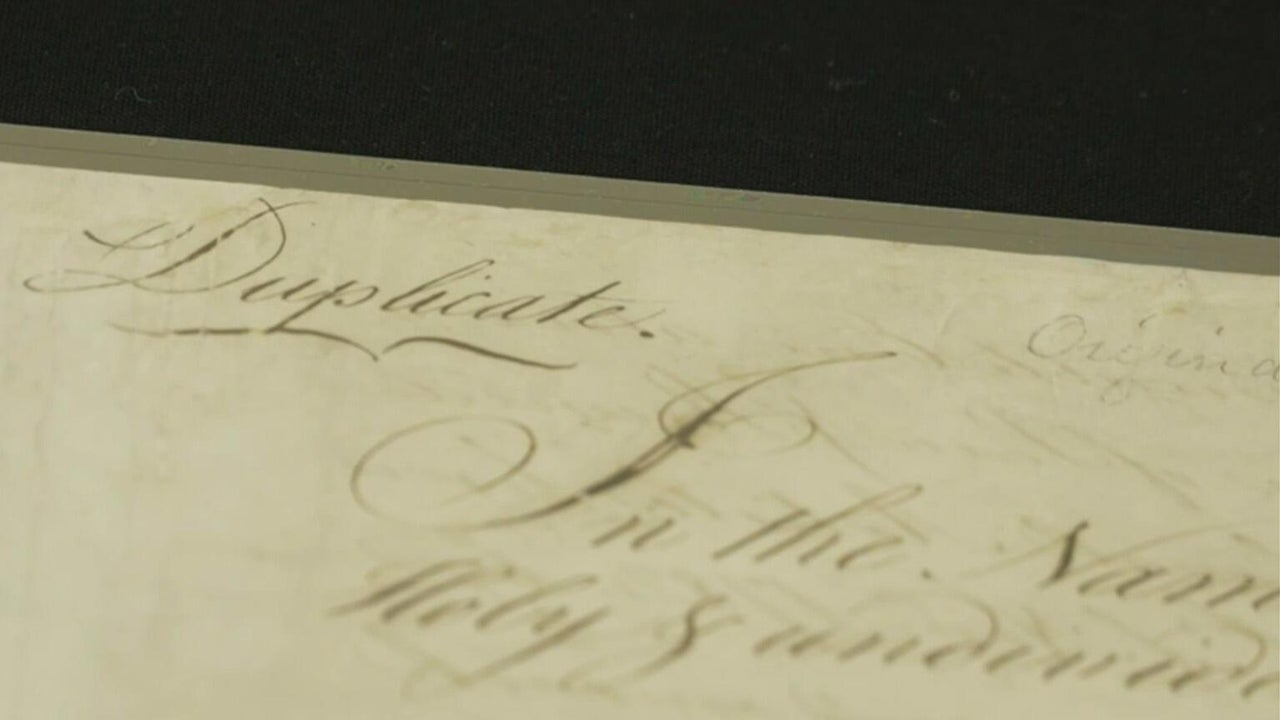 Duplicate.
Origina
In the Nam
Holy & undivid